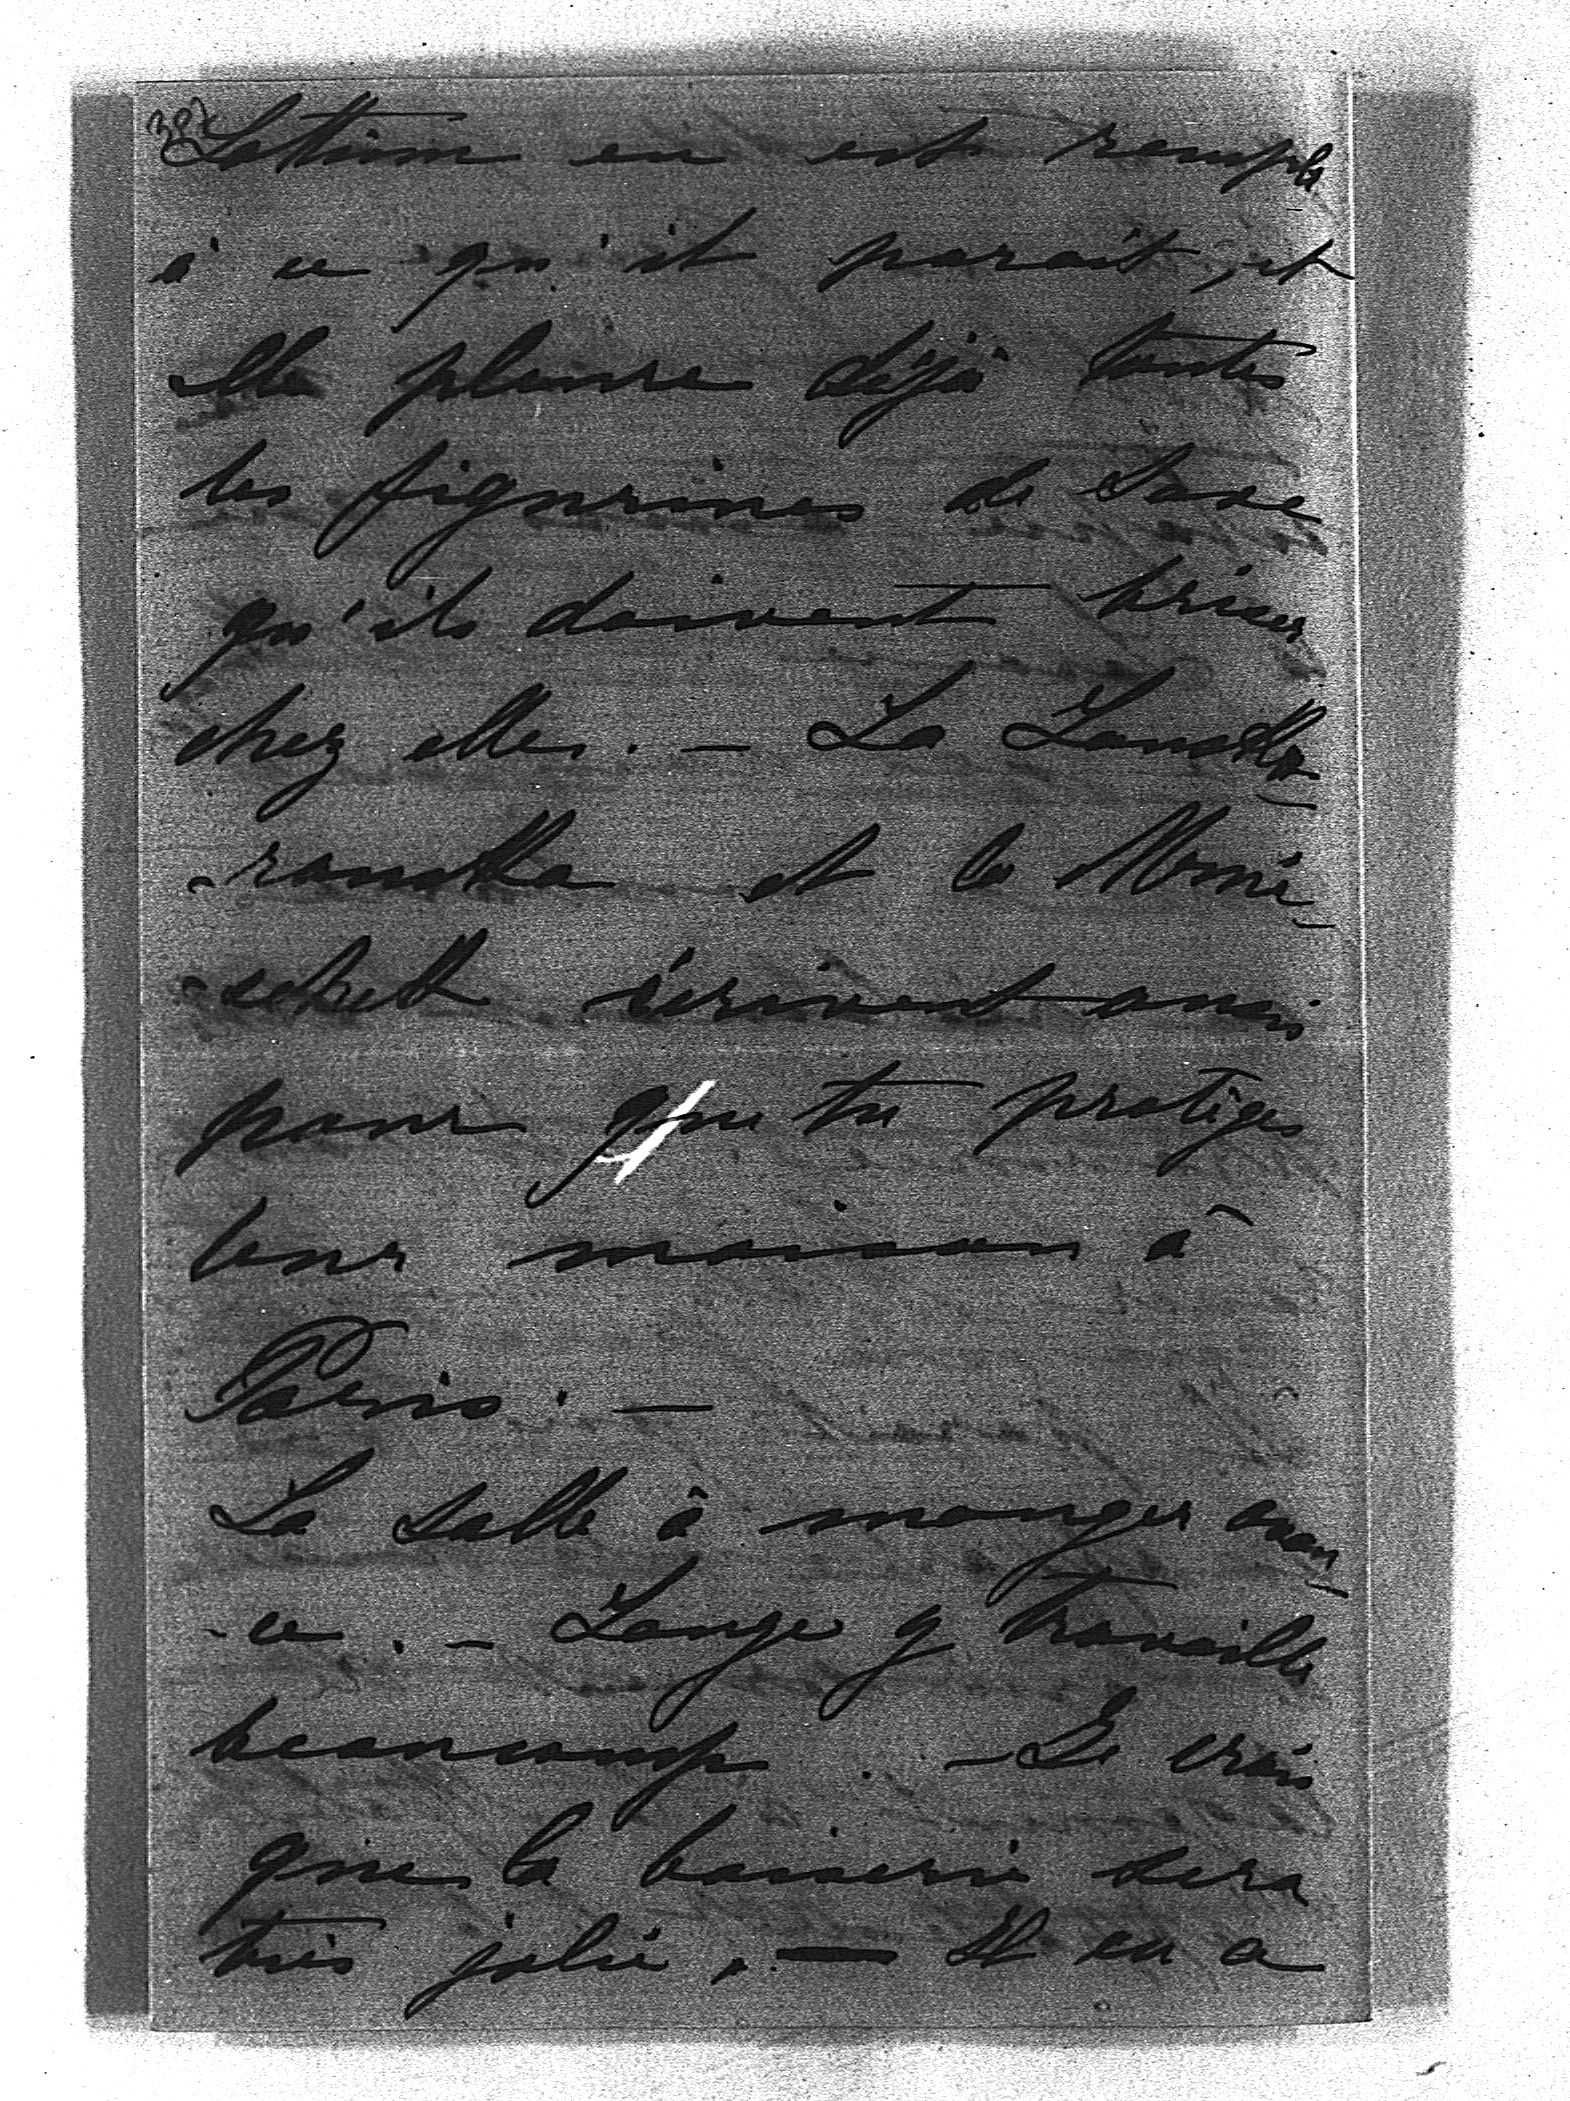 en est rempli
à ce qu'il parait, et
elle pleure déjà toutes
les figurines de Saxe
qu'ils doivent briser
chez elles. – La
et la
écrivent aussi
pour que tu protèges
leur maison à
Paris. –
La salle à manger avan-
-ce. – Lange y travaille
beaucoup. – Je crois
que la boiserie sera
très jolie. – Il en a